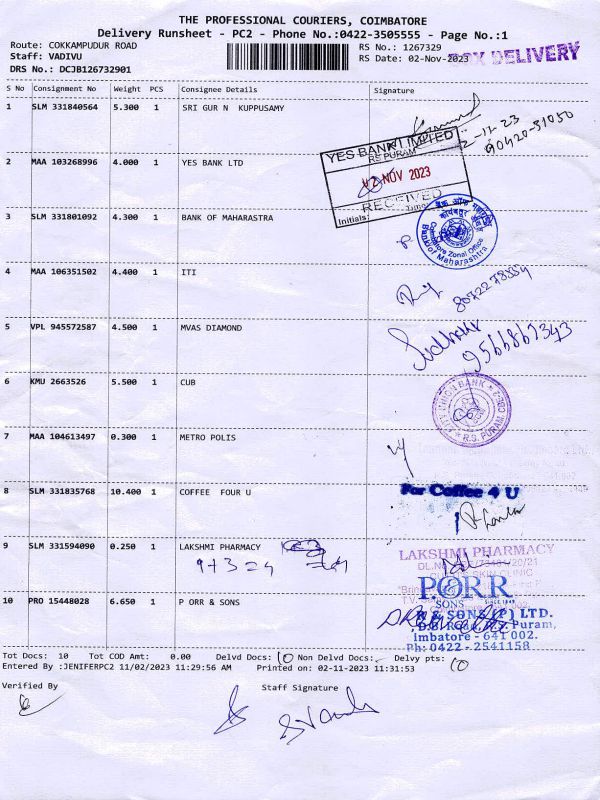 THE PROFESSIONAL COURIERS, COIMBATORE
Delivery Runsheet - PC2 - Phone No.:0422-3505555 - Page No.:1
Route: COKKAMPUDUR ROAD
Staff: VADIVU
DRS No.: DCJB126732901
RS No.: 1267329
RS Date: 02-Nov-2023
BOX DELIVERY
S No Consignment No Weight PCS Consignee Details Signature
1 SLM 331840564 5.300 1 SRI GUR N KUPPUSAMY
90420-31050
2 MAA 103268996 4.000 1 YES BANK LTD
YES BANK LIMITED
RS PURAM
02 NOV 2023
RECEIVED
Initials:
3 SLM 331801092 4.300 1 BANK OF MAHARASTRA
Coimbatore Zonal Office
Bank of Maharashtra
4 MAA 106351502 4.400 1 ITI
5 VPL 945572587 4.500 1 MVAS DIAMOND
Sudhakar
9566869343
6 KMU 2663526 5.500 1 CUB
CITY UNION BANK
R.S. PURAM, CBE-2
7 MAA 104613497 0.300 1 METRO POLIS
8 SLM 331835768 10.400 1 COFFEE FOUR U
For Coffee 4 U
9 SLM 331594090 0.250 1 LAKSHMI PHARMACY
9+3=4
LAKSHMI PHARMACY
10 PRO 15448028 6.650 1 P ORR & SONS
P.ORR
SONS
SINCE 1849
& SONS (P) LTD.
D.B. Road, R.S. Puram,
imbatore - 641 002.
Ph: 0422 - 2541158
Tot Docs: 10 Tot COD Amt: 0.00 Delvd Docs: 10 Non Delvd Docs: Delvy pts: 10
Entered By :JENIFERPC2 11/02/2023 11:29:56 AM Printed on: 02-11-2023 11:31:53
Verified By Staff Signature